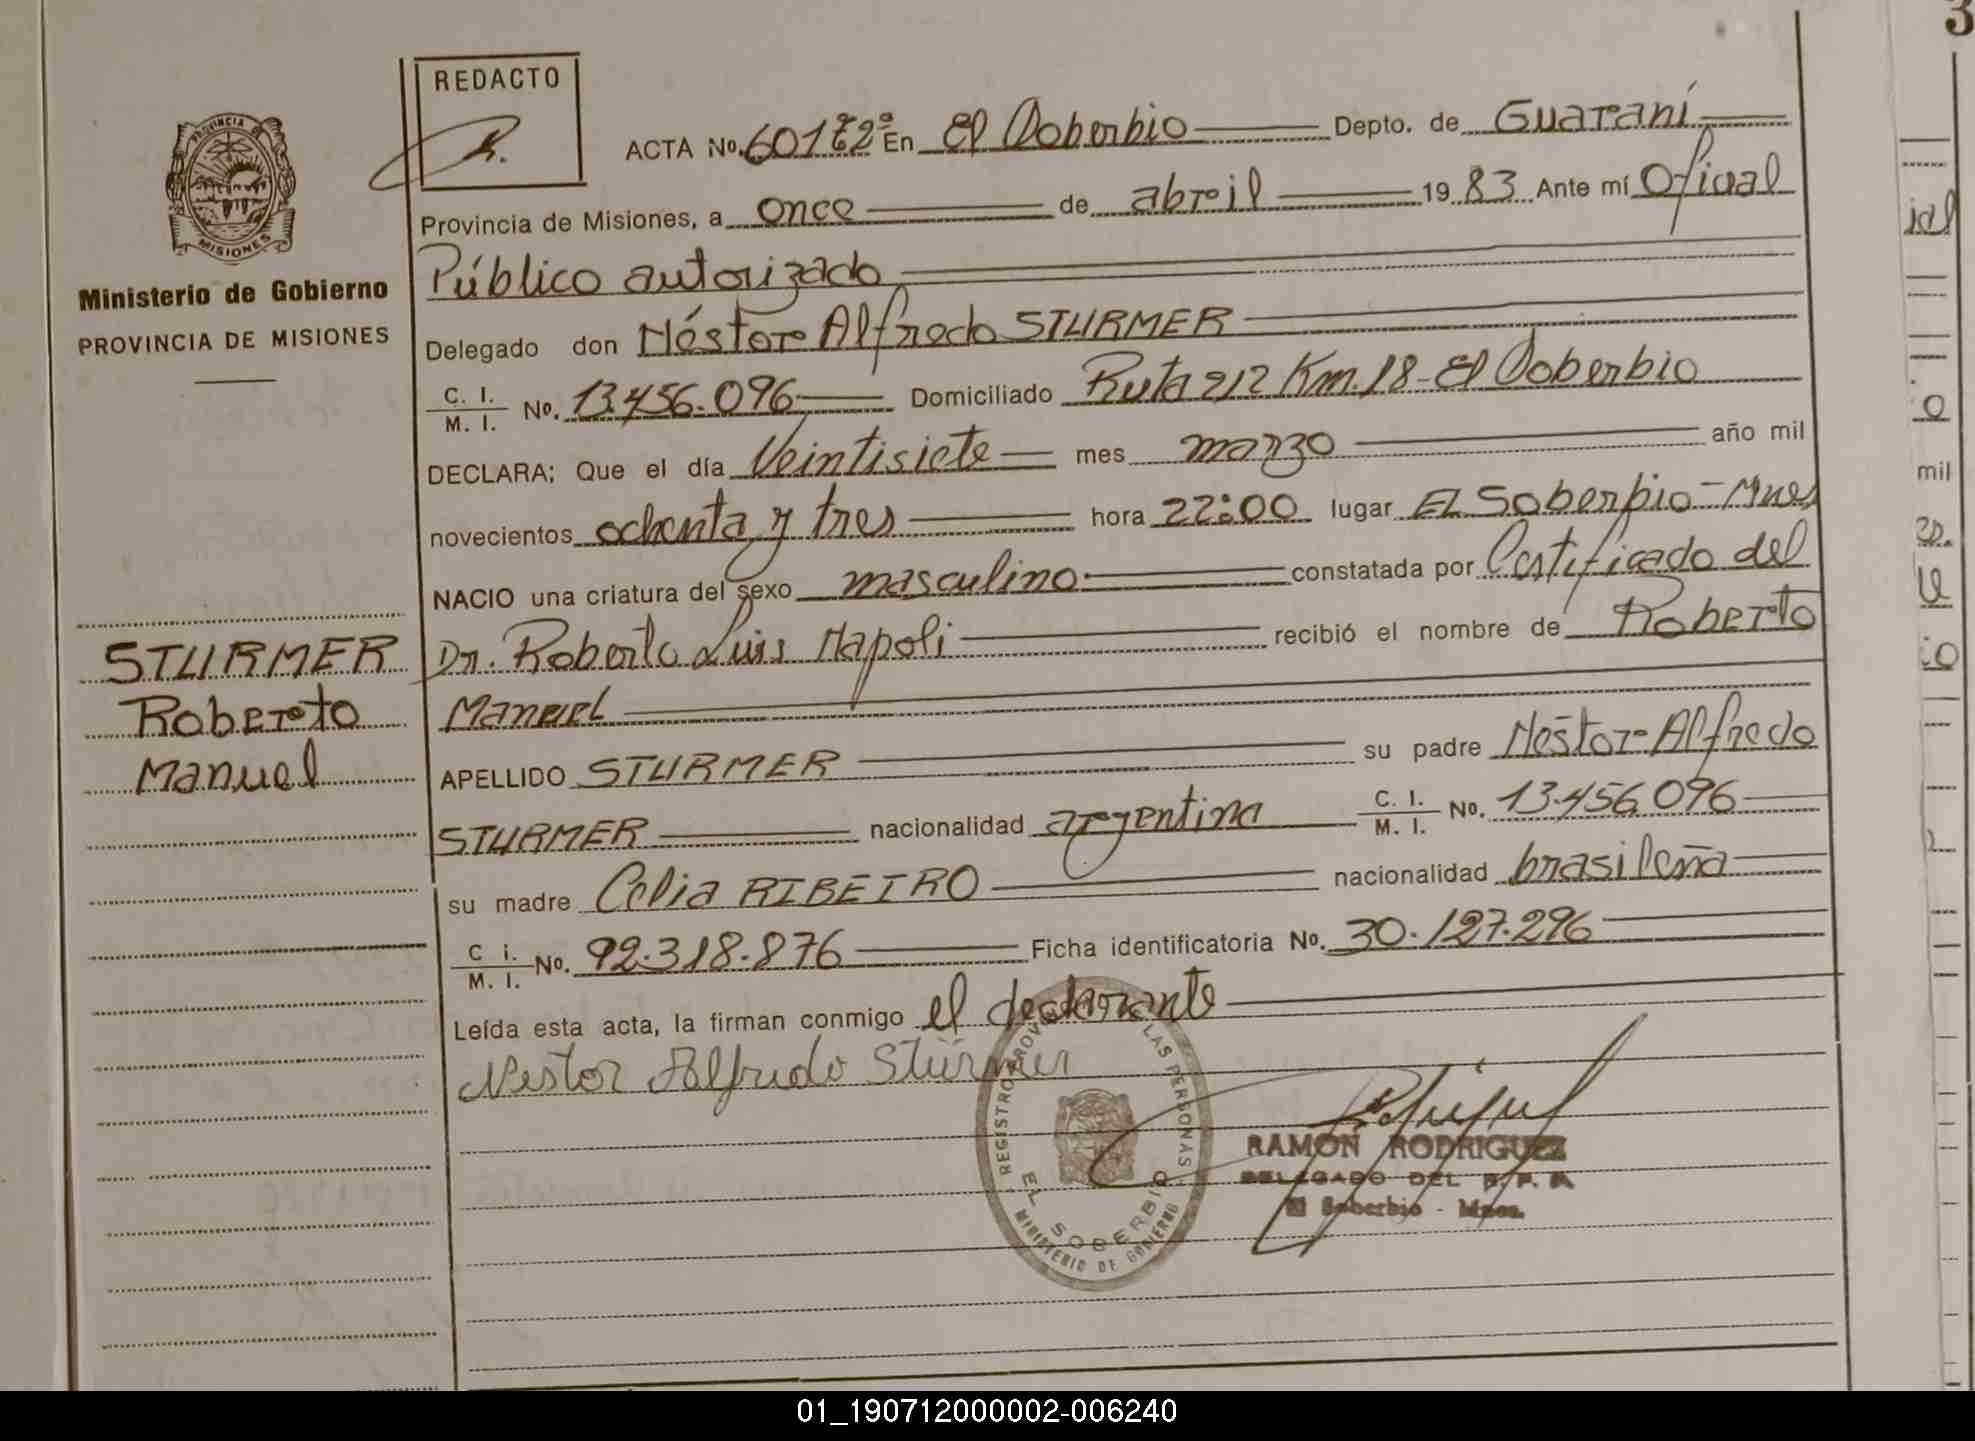 3
REDACTO
PROVINCIA DE
MISIONES
Ministerio de Gobierno
PROVINCIA DE MISIONES
STURMER
Roberto
Manuel
ACTA No. En El Soberbio Depto. de Guaraní
Provincia de Misiones, a once de abril 19 83 Ante mí Oficial
Público autorizado
Delegado don Néstor Alfredo STURMER
C. I.
M. I. No. 13.456.096 Domiciliado Ruta 212 Km. 18 - El Soberbio
DECLARA; Que el día Veintisiete mes marzo año mil
novecientos ochenta y tres hora 22:00 lugar El Soberbio - Mnes
NACIO una criatura del sexo masculino constatada por Certificado del
Dr. Roberto Luis Napoli recibió el nombre de Roberto
Manuel
APELLIDO STURMER su padre Néstor Alfredo
STURMER nacionalidad argentina C. I. M. I. No. 13.456.096
su madre Celia RIBEIRO nacionalidad brasileña
C i. M. I. No. 92.318.876 Ficha identificatoria No. 30.127.296
Leída esta acta, la firman conmigo el declarante
Nestor Alfredo Stürmer
REGISTRO PROV LAS PERSONAS
EL SOBERBIO
MINISTERIO DE GOBIERNO
RAMON RODRIGUEZ
DELEGADO DEL R. P. P.
El Soberbio - Mnes.
ial
o
mil
io
01_190712000002-006240